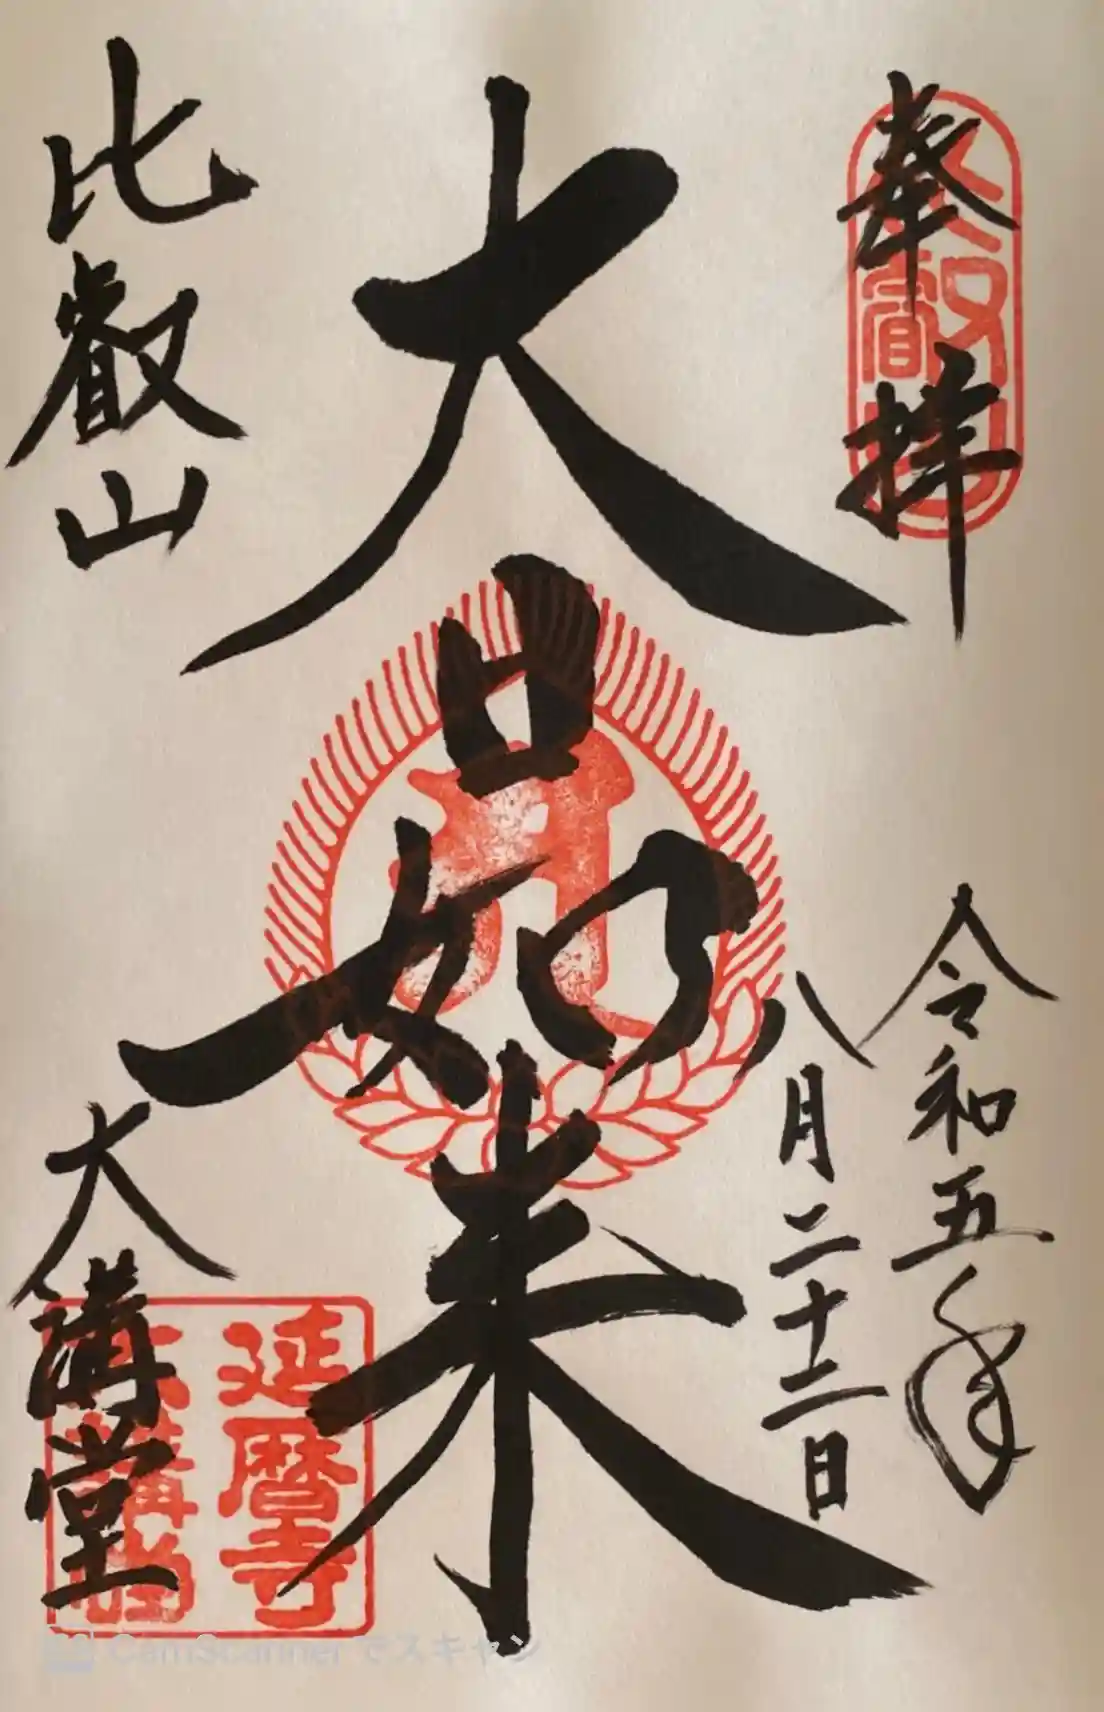 奉拝
令和五年
八月二十二日
大日如来
比叡山
大講堂
比叡山
延暦寺
大講堂
CamScanner でスキャン